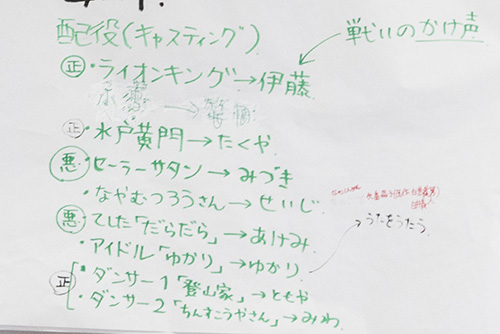 配役(キャスティング)
戦いのかけ声
正 ・ライオンキング→伊藤
正 ・水戸黄門→たくや
悪 ・セーラーサタン→みづき
・なやむつろうさん→せいじ
悪 ・てした「だらだら」→あけみ
→うたをうたう
・アイドル「ゆかり」→ゆかり
正 ・ダンサー1「登山家」→ともや
・ダンサー2「ちんすこうやさん」→みわ